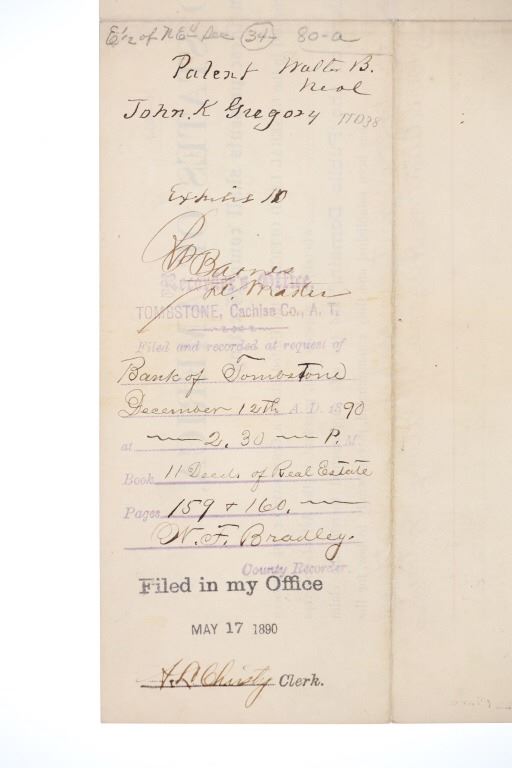 E½ of NE¼ Sec 34 80-a
Patent Walter B.
Neal
John. K Gregory
Exhibit 10
Barnes
Recorder's Office,
TOMBSTONE, Cachise Co., A. T.
Filed and recorded at request of
Bank of Tombstone
December 12th A. D. 1890
at 2.30 P. M.
Book 11 Deeds of Real Estate
Pages 159 + 160.
W. F. Bradley.
County Recorder.
Filed in my Office
MAY 17 1890
Christy Clerk.